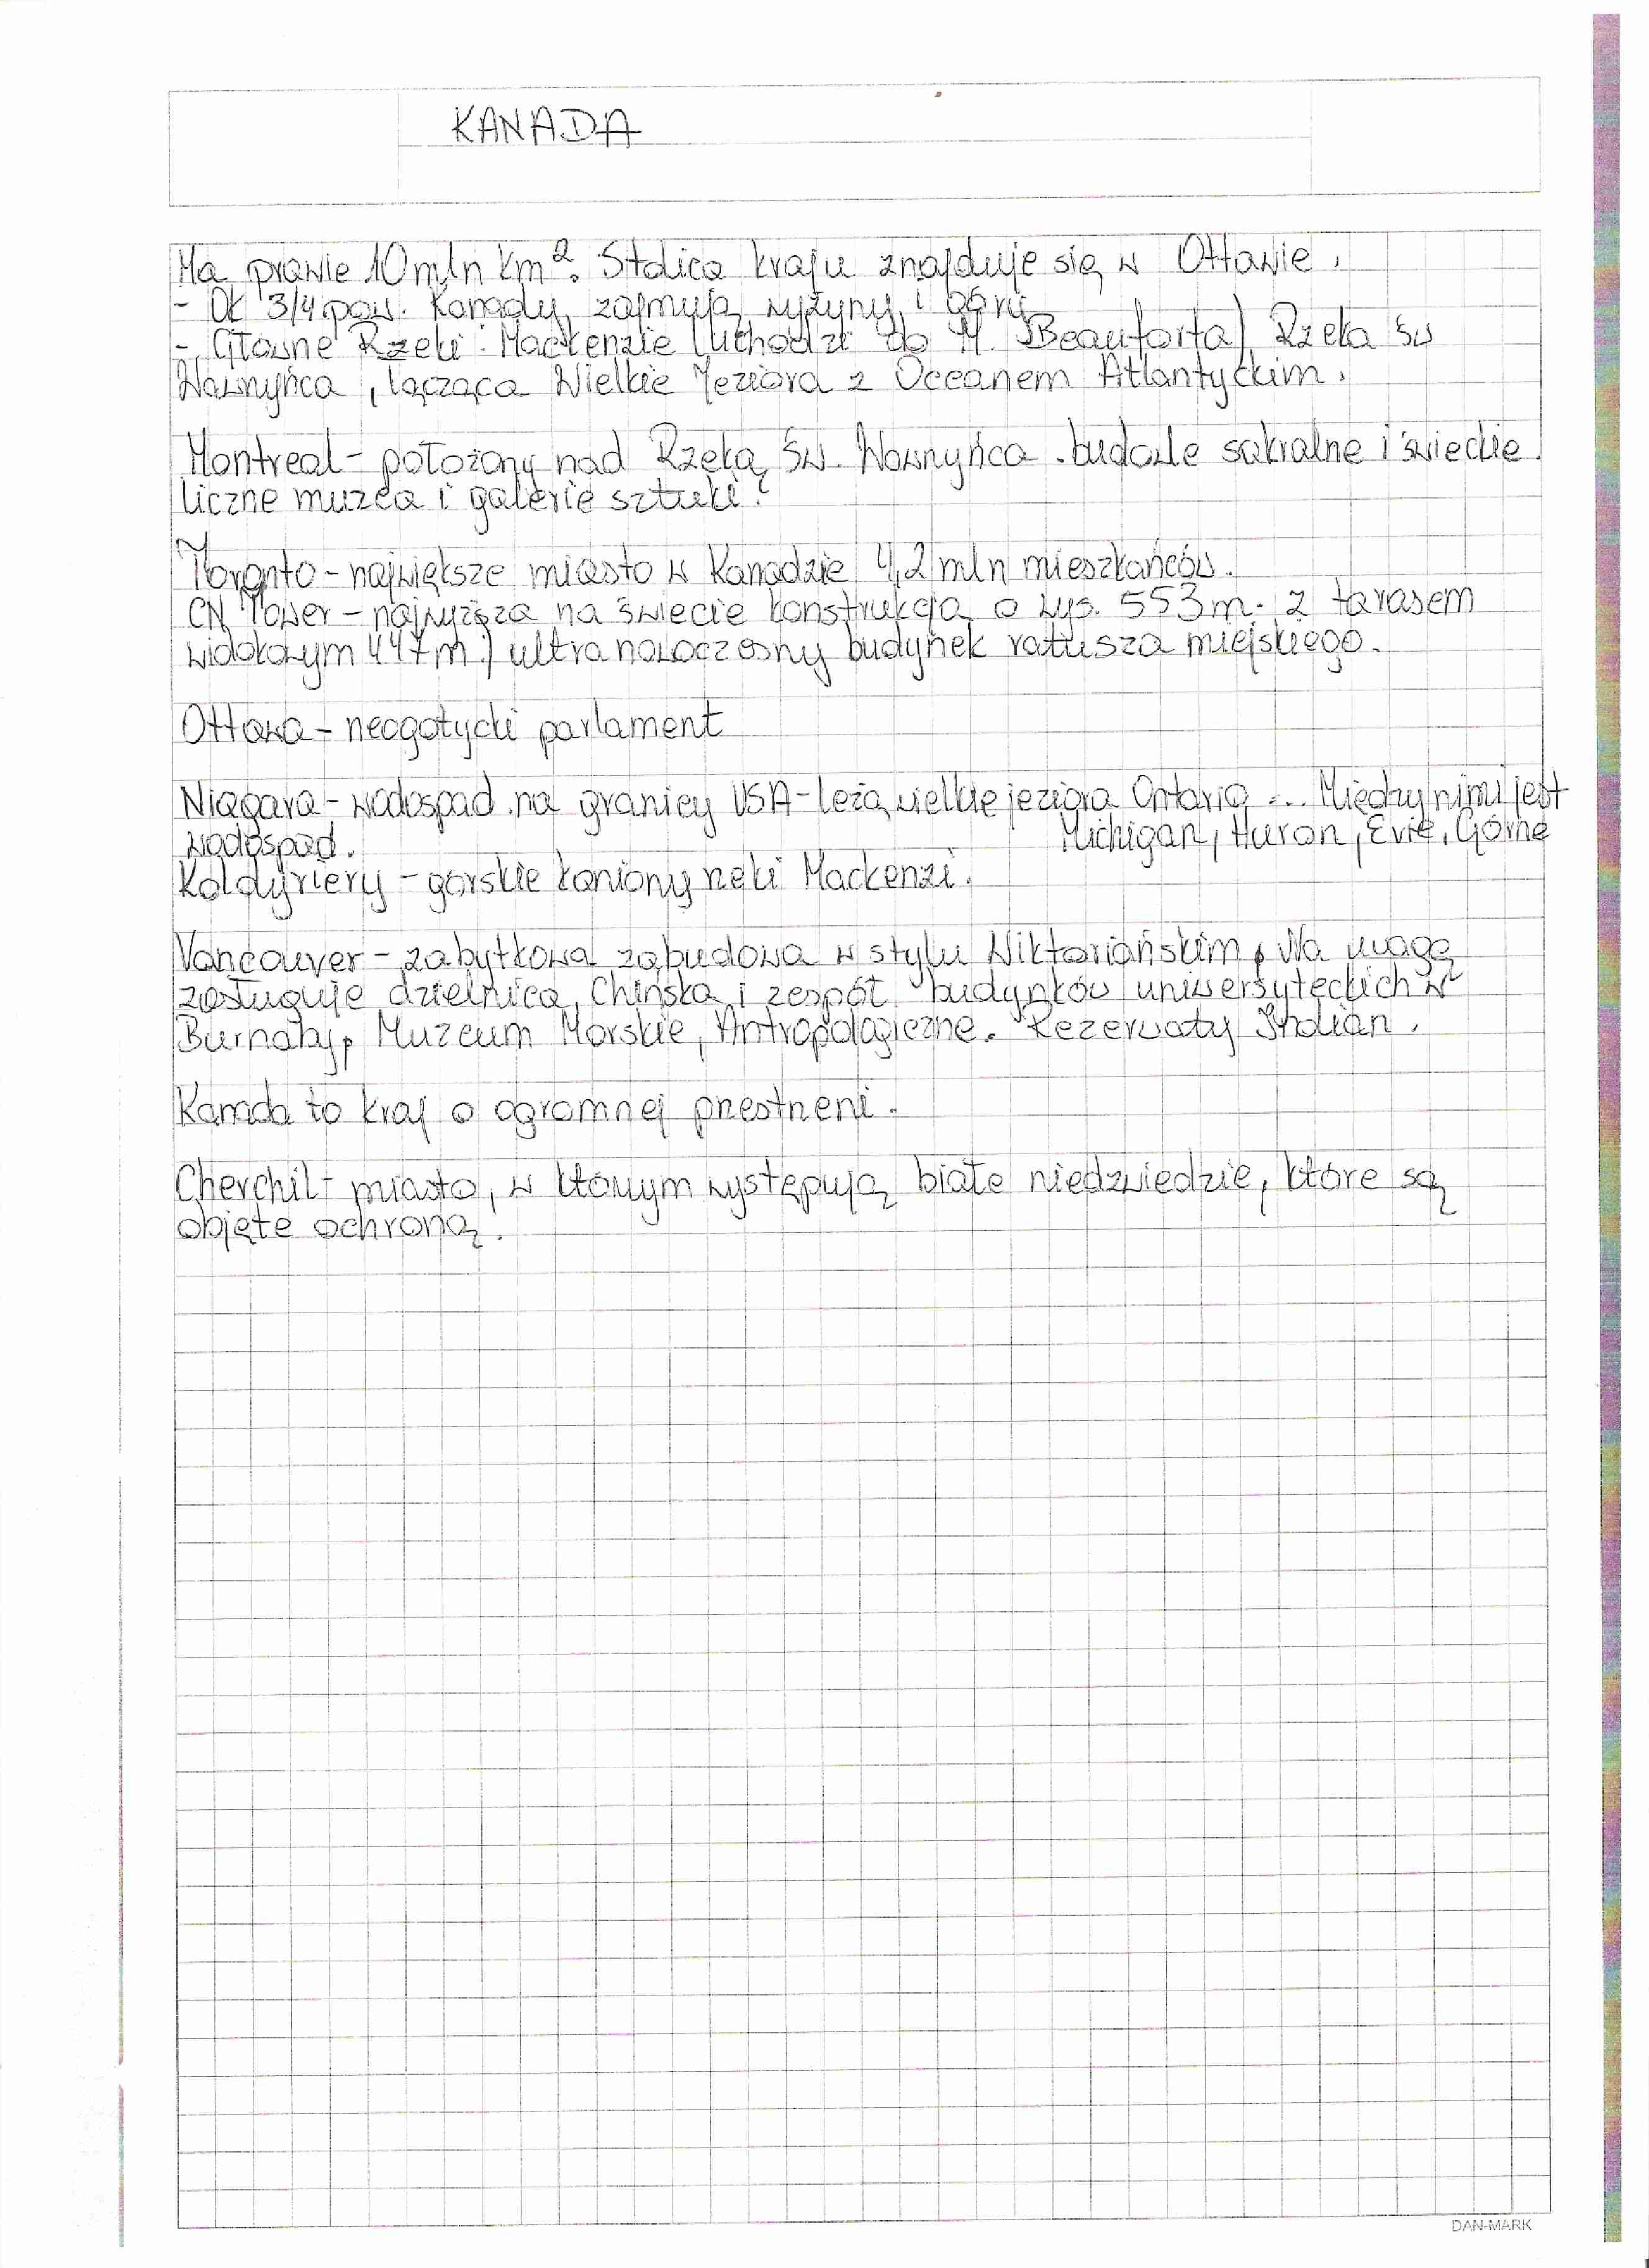 KANADA
Ma prawie 10 mln km². Stolica kraju znajduje się w Ottawie.
- Ok 3/4 pow. Kanady zajmują wyżyny i góry
- Główne Rzeki: Mackenzie (uchodzi do M. Beauforta) Rzeka Św
Wawrzyńca, łącząca Wielkie Jeziora z Oceanem Atlantyckim.
Montreal - położony nad Rzeką Św. Wawrzyńca. budowle sakralne i świeckie.
liczne muzea i galerie sztuki.
Toronto - największe miasto w Kanadzie 4,2 mln mieszkańców.
CN Tower - najwyższa na świecie konstrukcja o wys. 553m. z tarasem
widokowym 447m.) ultra nowoczesny budynek ratusza miejskiego.
Ottawa - neogotycki parlament
Niagara - wodospad na granicy USA - leżą wielkie jeziora Ontario ... Między nimi jest
wodospad. Michigan, Huron, Erie, Górne
Koldyriery - górskie kaniony rzeki Mackenzi.
Vancouver - zabytkowa zabudowa w stylu Wiktoriańskim, Na uwagę
zasługuje dzielnica Chińska i zespół budynków uniwersyteckich w
Burnaby, Muzeum Morskie, Antropologiczne. Rezerwaty Indian.
Kanada to kraj o ogromnej przestrzeni.
Cherchil - miasto, w którym występują białe niedzwiedzie, które są
objęte ochroną.
DAN-MARK